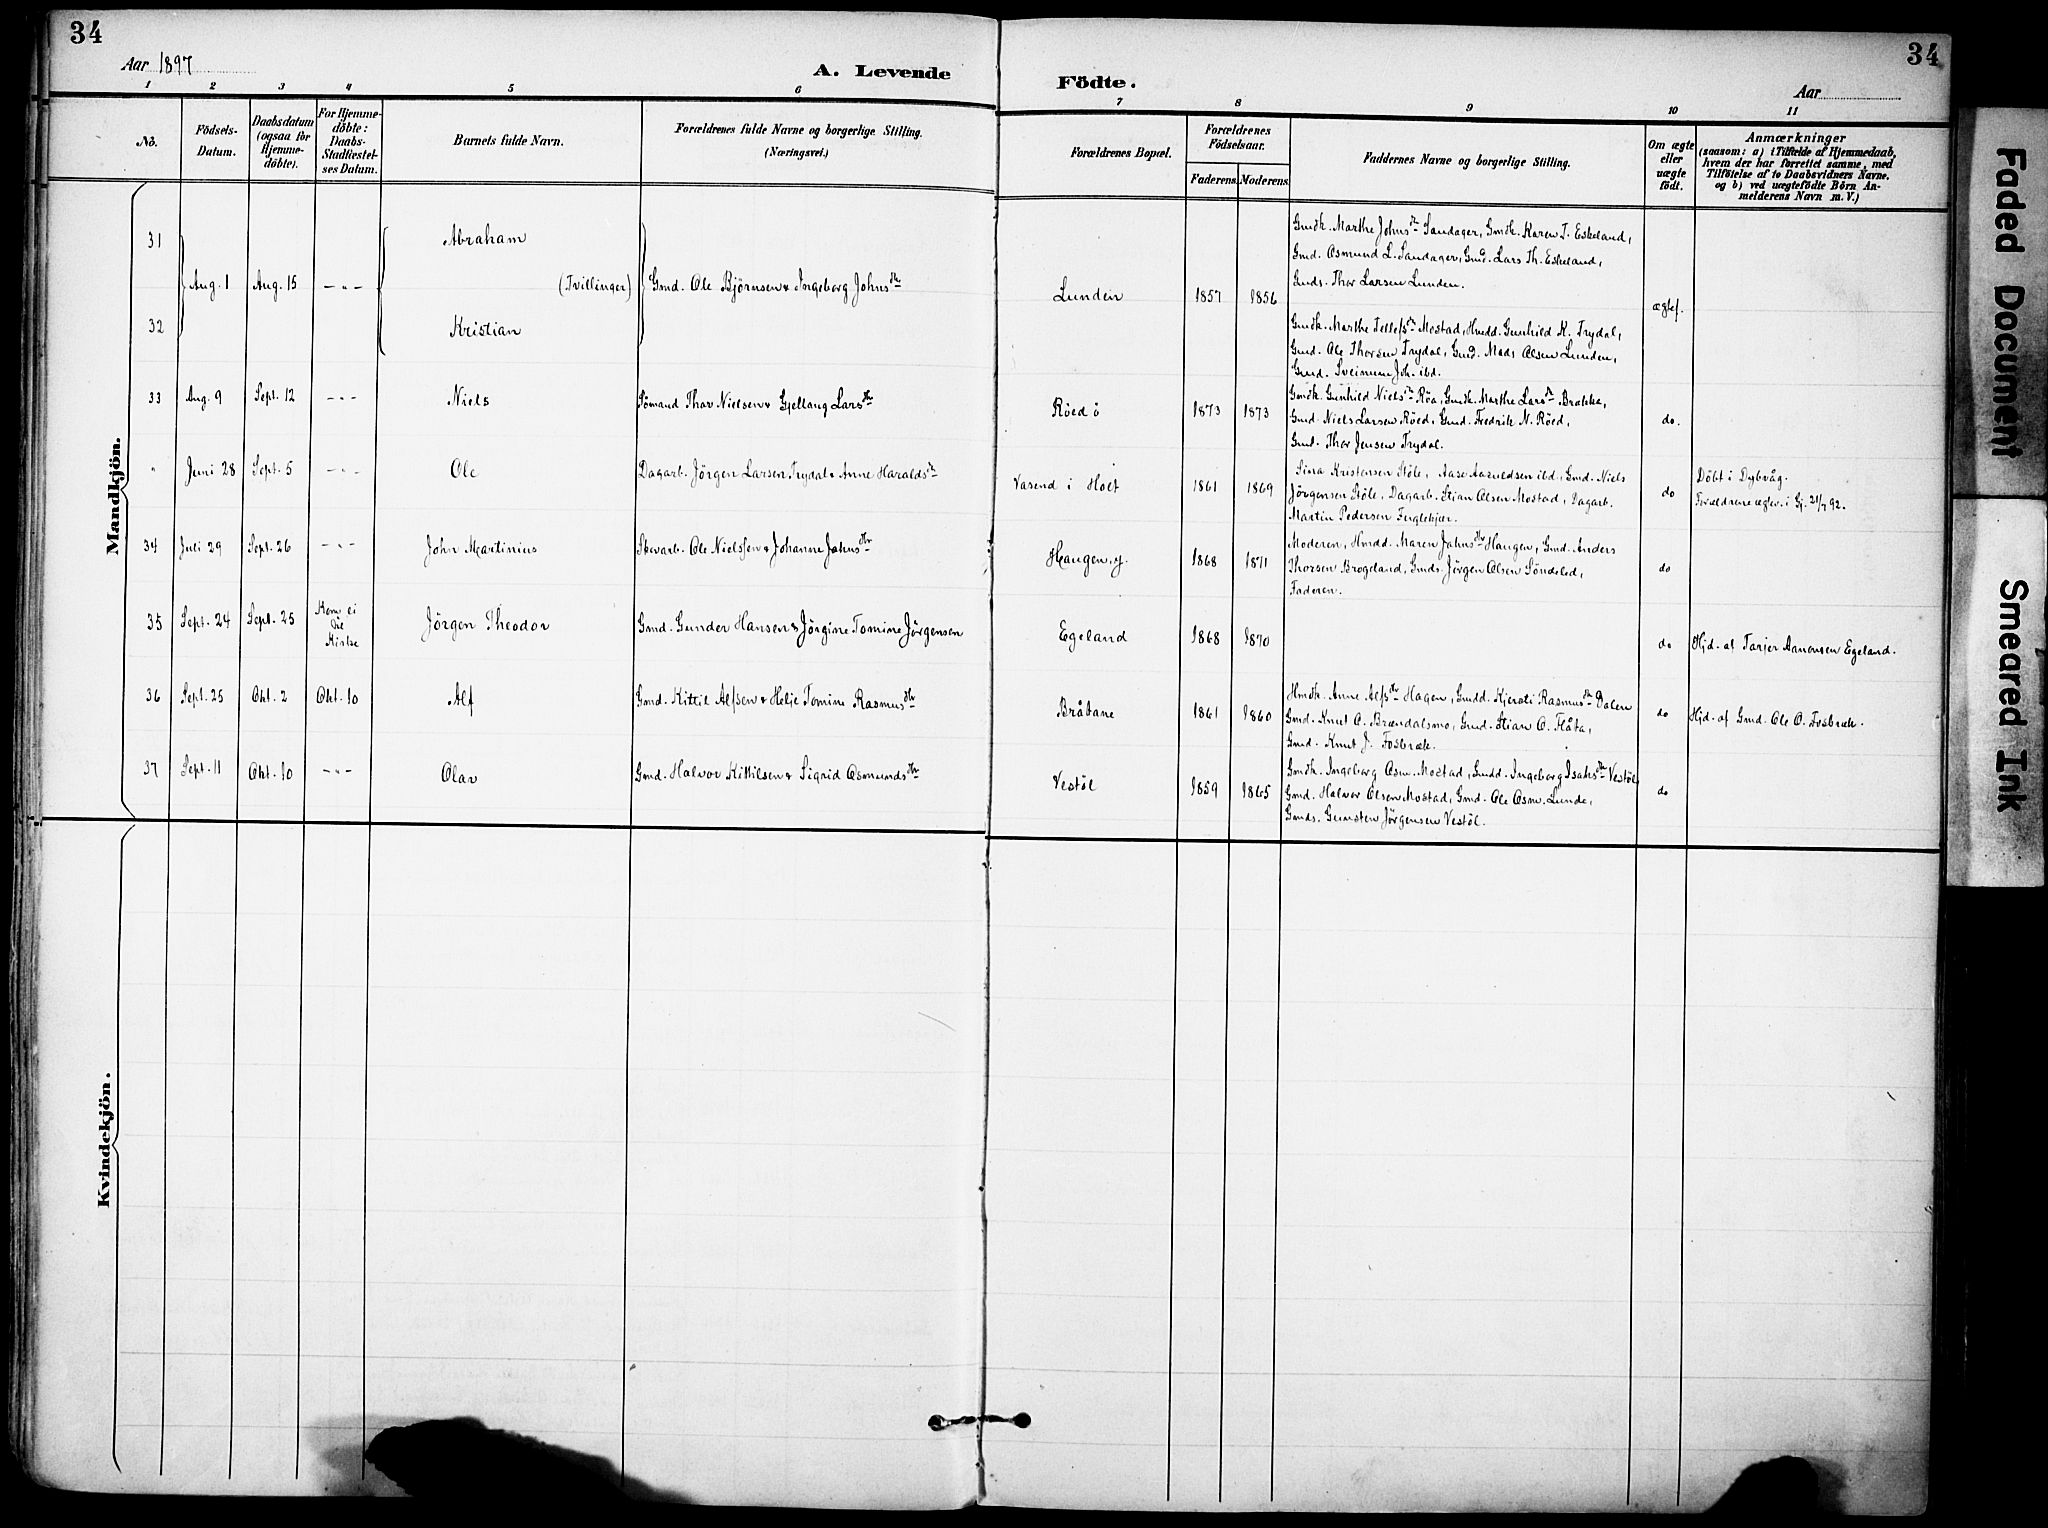 34
34
Aar 1897
A. Levende
Födte.
Aar
1 2 3 4 5 6 7 8 9 10 11
No.
Födsels-Datum.
Daabsdatum (ogsaa for Hjemme-döbte).
For Hjemme-döbte: Daabs-Stadfæstel-ses Datum.
Barnets fulde Navn.
Forældrenes fulde Navne og borgerlige Stilling.
(Næringsvei.)
Forældrenes Bopæl.
Forældrenes Födselsaar.
Faderens. Moderens.
Faddernes Navne og borgerlige Stilling.
Om ægte eller uægte födt.
Anmærkninger
(saasom: a) i Tilfælde af Hjemmedaab,
hvem der har forrettet samme, med
Tilföielse af to Daabsvidners Navne.
og b) ved uægtefödte Börn An-
melderens Navn m. V.)
Mandkjön.
31 Abraham
Aug. 1 Aug. 15 -"- (Tvillinger) Gmd. Ole Björnsen & Ingeborg Johnsdtr Lunden 1857 1856 ægtef.
32 Kristian
Gmdk. Marthe Johnsdtr Sandager, Gmdk. Karen T. Eskeland,
Gmd. Osmund L. Sandager, Gmd. Lars Th. Eskeland,
Gmds. Thor Larsen Lunden.
Gmdk. Marthe Tellefsdtr Mostad, Hmdd. Gunhild K. Trydal,
Gmd. Ole Thorsen Trydal, Gmd. Mads Olsen Lunden,
Gmd. Sveinun Joh. ibd.
33 Aug. 9 Sept. 12 -"- Niels Sömand Thor Nielsen & Gjellaug Larsdtr Röed ö 1873 1873 do.
Gmdk. Gunhild Nielsdtr Röa, Gmdk. Marthe Larsdtr Brakka,
Gmd. Niels Larsen Röed, Gmd. Fredrik N. Röed,
Gmd. Thor Jensen Trydal.
" Juni 28 Sept. 5 -"- Ole Dagarb. Jörgen Larsen Trydal & Anne Haraldsdtr Vasend i Holt 1861 1869 do
Sina Kristensen Stöle, Aase Aanuldsen ibd, Gmd. Niels
Jörgensen Stöle, Dagarb. Stian Olsen Mostad, Dagarb.
Martin Pedersen Fuglekjær.
Döbt i Dybvåg.
Forældrene ægtev. i Gj. 21/7 92.
34 Juli 29 Sept. 26 -"- John Martinius Skovarb. Ole Nielssen & Johanne Jahnsdtr Haugen, y. 1868 1871 do
Moderen, Hmdd. Maren Jahnsdtr Haugen, Gmd. Anders
Thorsen Brogeland, Gmds. Jörgen Olsen Söndeled,
Faderen.
35 Sept. 24 Sept. 25 Kom ei til Kirke Jörgen Theodor Gmd. Gunder Hansen & Jörgine Tomine Jörgensen Egeland 1868 1870 do Hjd. af Tarjer Aanonsen Egeland.
36 Sept. 25 Okt. 2 Okt. 10 Alf Gmd. Kittil Alfsen & Helje Tomine Rasmusdtr Bråtane 1861 1860 do Hjd. af Gmd. Ole O. Fosbræk.
Hmdk. Anne Alfsdtr Hagen, Gmdd. Kjersti Rasmusdtr Dalen
Gmd. Knut O. Brændalsmo, Gmd. Stian O. Flåta,
Gmd. Knut J. Fosbræk.
37 Sept. 11 Okt. 10 -"- Olav Gmd. Halvor Kittilsen & Sigrid Osmundsdtr Vestöl 1859 1865 do
Gmdk. Ingeborg Osm. Mostad, Gmdd. Ingeborg Isaksdtr Vestöl
Gmd. Halvor Olsen Mostad, Gmd. Ole Osm. Lunde,
Gmds. Gunsten Jörgensen Vestöl.
Kvindekjön.
Faded Document
Smeared Ink